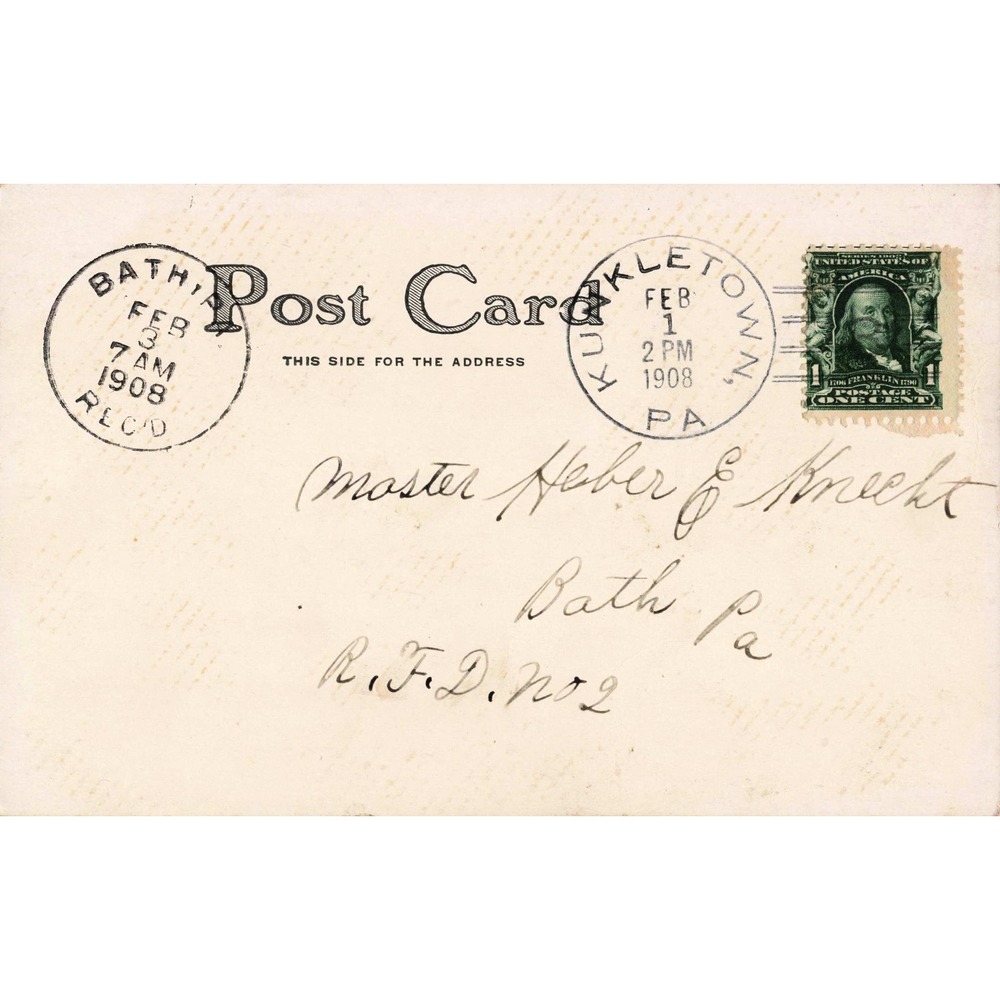 BATH, PA
FEB
3
7 AM
1908
REC'D
Post Card
THIS SIDE FOR THE ADDRESS
KUNKLETOWN,
FEB
1
2 PM
1908
PA
SERIES 1902
UNITED STATES OF
AMERICA
1706 FRANKLIN 1790
1 1
POSTAGE
ONE CENT
Master Heber E Knecht
Bath Pa
R.F.D. No 2